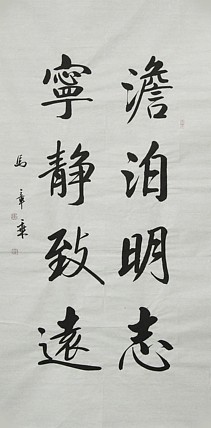 澹泊明志
寧靜致遠
馬章乘